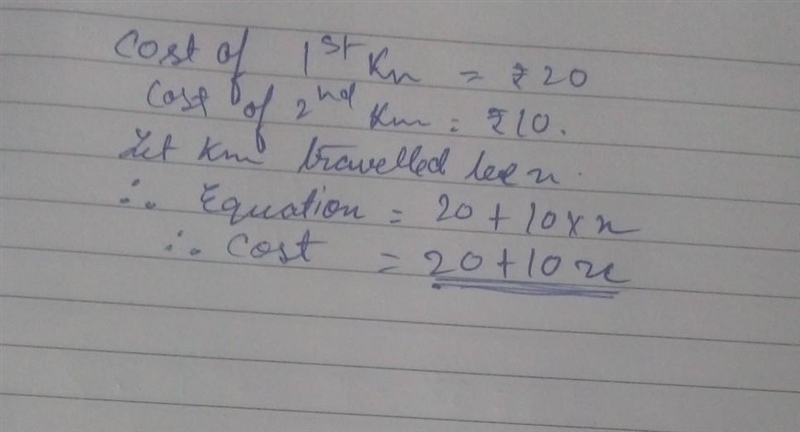 Cost of 1st Km = ₹20
Cost of 2nd Km = ₹10.
Let Km travelled be x.
∴ Equation = 20 + 10 × x
∴ Cost = 20 + 10x